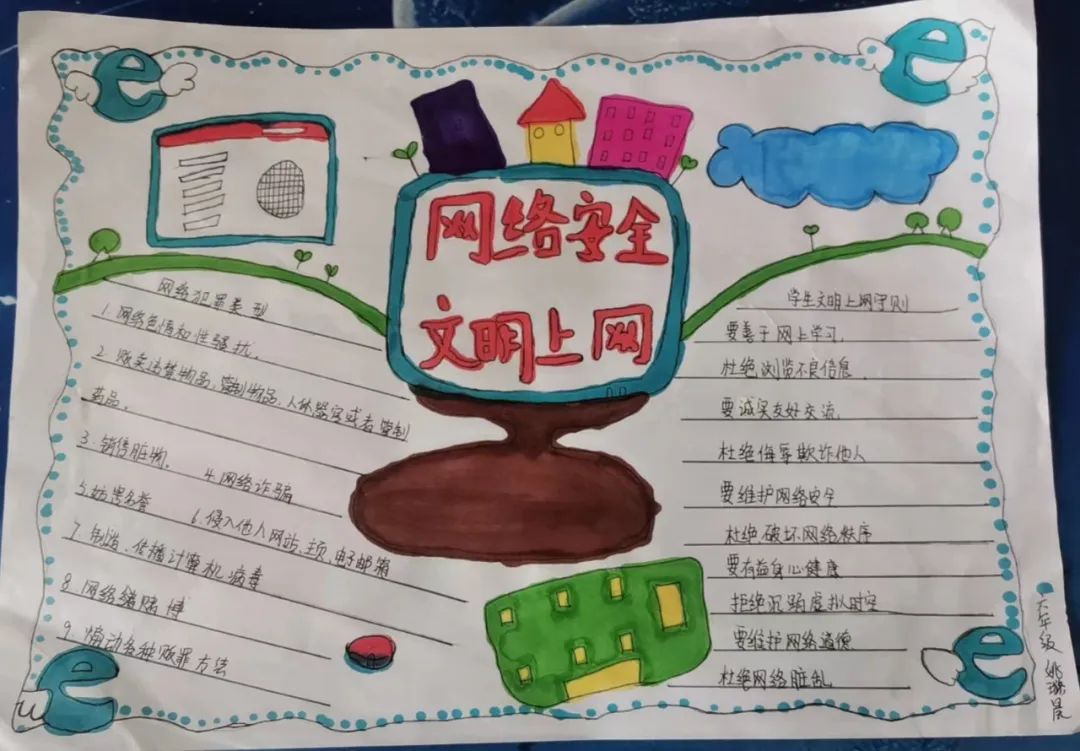 网络安全
文明上网
网络犯罪类型
1.网络色情和性骚扰.
2.贩卖违禁物品,管制物品,人体器官或者管制
药品。
3.销售赃物。 4.网络诈骗
5.妨害名誉 6.侵入他人网站,主页,电子邮箱
7.制造、传播计算机病毒
8.网络赌博
9.煽动各种贩罪方法
学生文明上网守则
要善于网上学习.
杜绝浏览不良信息.
要诚实友好交流.
杜绝侮辱欺诈他人
要维护网络安全
杜绝破坏网络秩序
要有益身心健康
拒绝沉溺虚拟时空
要维护网络道德
杜绝网络脏乱
六年级